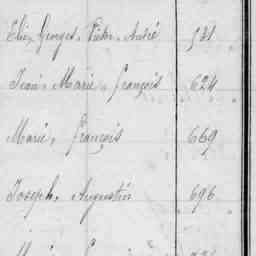 Elie, Georges, Victor, André 541
Jean, Marie, François 624
Marie, François 669
Joseph, Augustin 696